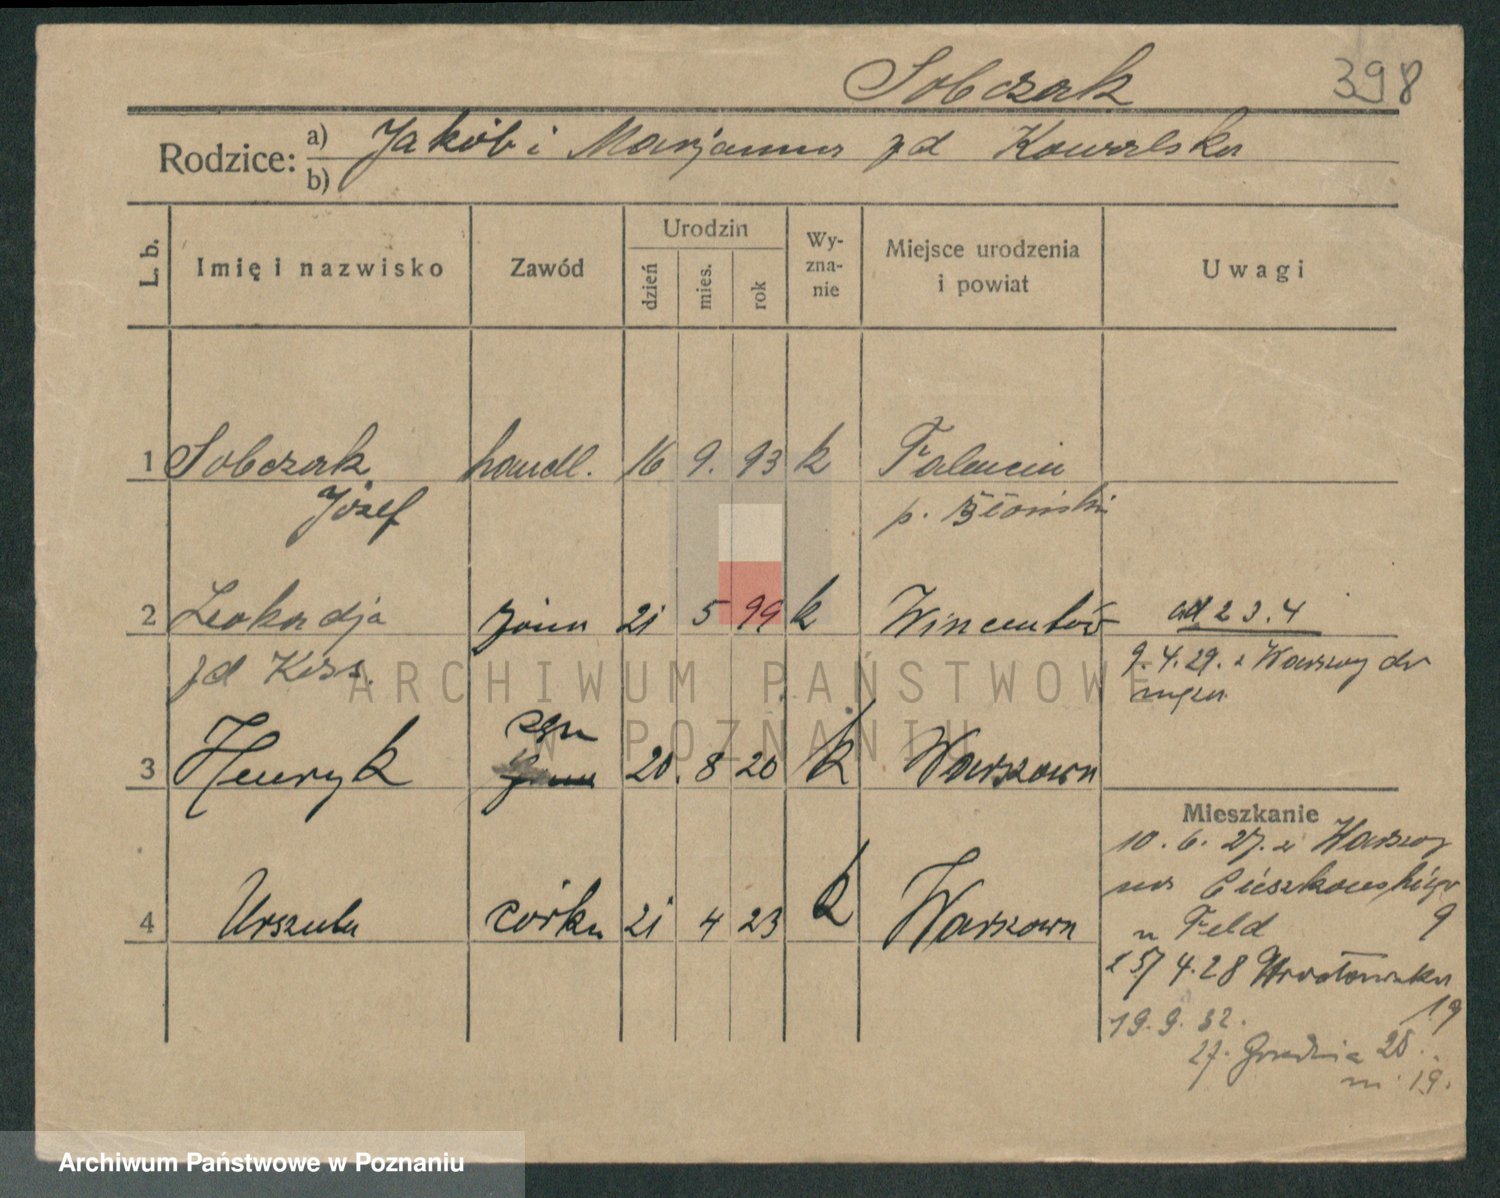 Sobczak 398
Rodzice: a) Jakób i Marjanna zd Kowalska
b)
L. b. Imię i nazwisko Zawód Urodzin dzień mies. rok Wy-zna-nie Miejsce urodzenia i powiat Uwagi
1 Sobczak handl. 16 9. 93 k Falencin
Józef p. Błoński
2 Leokadja żona 21 5 99 k Wincentów ad 2 3. 4
zd Kiss. 9. 4. 29. z Warszwy do
męża
ARCHIWUM PAŃSTWOWE
W POZNANIU
syn
3 Henryk 20. 8 20 k Warszawa
Mieszkanie
10. 6. 27. z Warszwy
Cieszkowskiego
4 Urszula córka 21 4 23 k Warszawa
u Feld 9
4. 28
19. 9. 32. 19
27. Grudnia
m. 19.
Archiwum Państwowe w Poznaniu